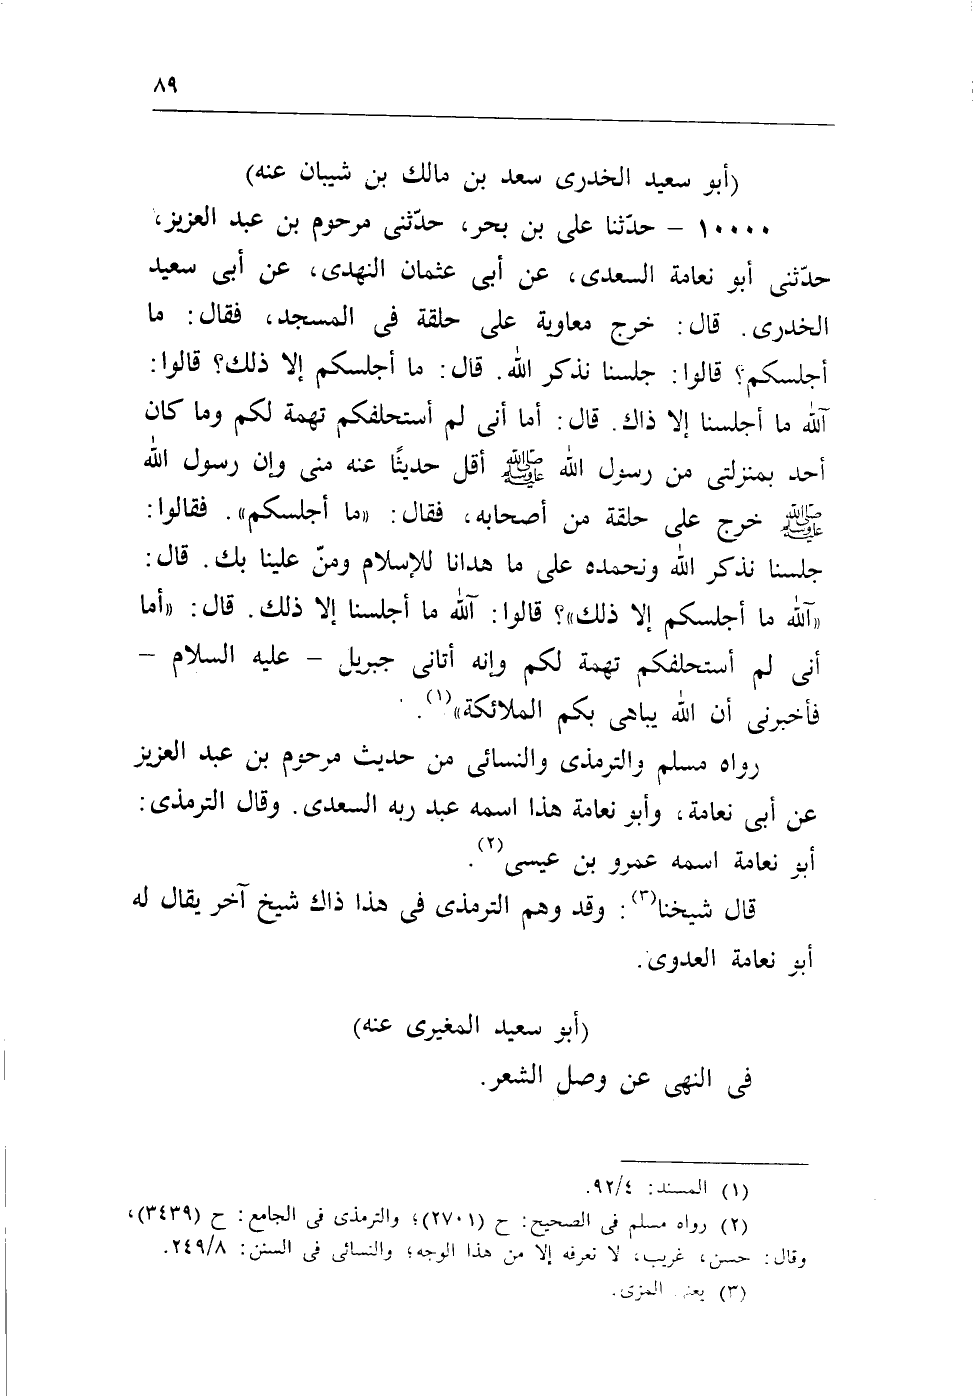 ٨٩
(أبو سعيد الخدرى سعد بن مالك بن شيبان عنه)
١٠٠٠٠ – حدّثنا على بن بحر، حدّثنى مرحوم بن عبد العزيز،
حدّثنى أبو نعامة السعدى، عن أبى عثمان النهدى، عن أبى سعيد
الخدرى. قال: خرج معاوية على حلقة فى المسجد، فقال: ما
أجلسكم؟ قالوا: جلسنا نذكر الله. قال: ما أجلسكم إلا ذلك؟ قالوا:
آلله ما أجلسنا إلا ذاك. قال: أما أنى لم أستحلفكم تهمة لكم وما كان
أحد بمنزلتى من رسول الله ﷺ أقل حديثًا عنه منى وإن رسول الله
ﷺ خرج على حلقة من أصحابه، فقال: «ما أجلسكم». فقالوا:
جلسنا نذكر الله ونحمده على ما هدانا للإسلام ومنّ علينا بك. قال:
«آلله ما أجلسكم إلا ذلك»؟ قالوا: آلله ما أجلسنا إلا ذلك. قال: «أما
أنى لم أستحلفكم تهمة لكم وإنه أتانى جبريل – عليه السلام –
فأخبرنى أن الله يباهى بكم الملائكة»(١).
رواه مسلم والترمذى والنسائى من حديث مرحوم بن عبد العزيز
عن أبى نعامة، وأبو نعامة هذا اسمه عبد ربه السعدى. وقال الترمذى:
أبو نعامة اسمه عمرو بن عيسى(٢).
قال شيخنا(٣): وقد وهم الترمذى فى هذا ذاك شيخ آخر يقال له
أبو نعامة العدوى.
(أبو سعيد المغيرى عنه)
فى النهى عن وصل الشعر.
(١) المسند: ٩٢/٤.
(٢) رواه مسلم فى الصحيح: ح (٢٧٠١)؛ والترمذى فى الجامع: ح (٣٤٣٩)،
وقال: حسن، غريب، لا نعرفه إلا من هذا الوجه؛ والنسائى فى السنن: ٢٤٩/٨.
(٣) يعنى المزى.